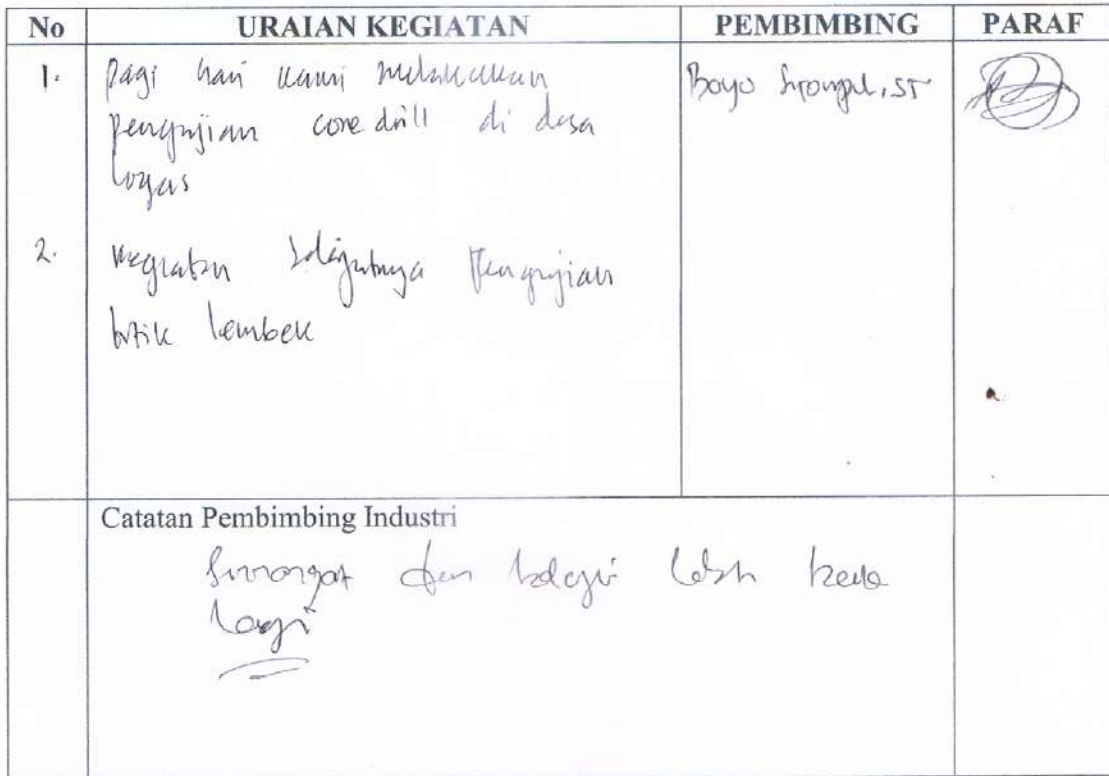 No URAIAN KEGIATAN PEMBIMBING PARAF
1. pagi hari kami melakukan Boyo, ST
pengujian core drill di desa
logas
2. kegiatan selanjutnya pengujian
titik lembek
Catatan Pembimbing Industri
Semangat dan belajar lebih keras
lagi